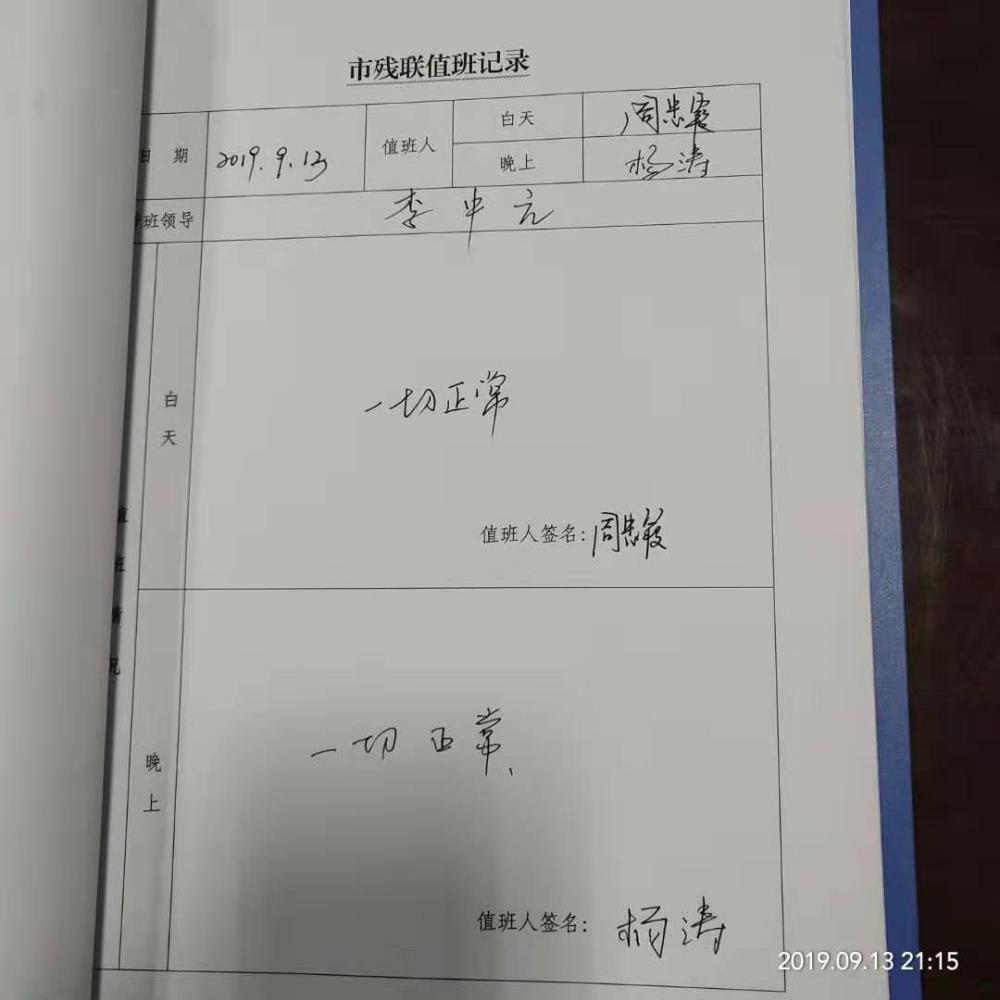 市残联值班记录
日 期 2019.9.13 值班人 白天 周忠霞
晚上 杨涛
带班领导 李中元
值班情况
白天
一切正常
值班人签名：周忠霞
晚上
一切正常、
值班人签名： 杨涛
2019.09.13 21:15